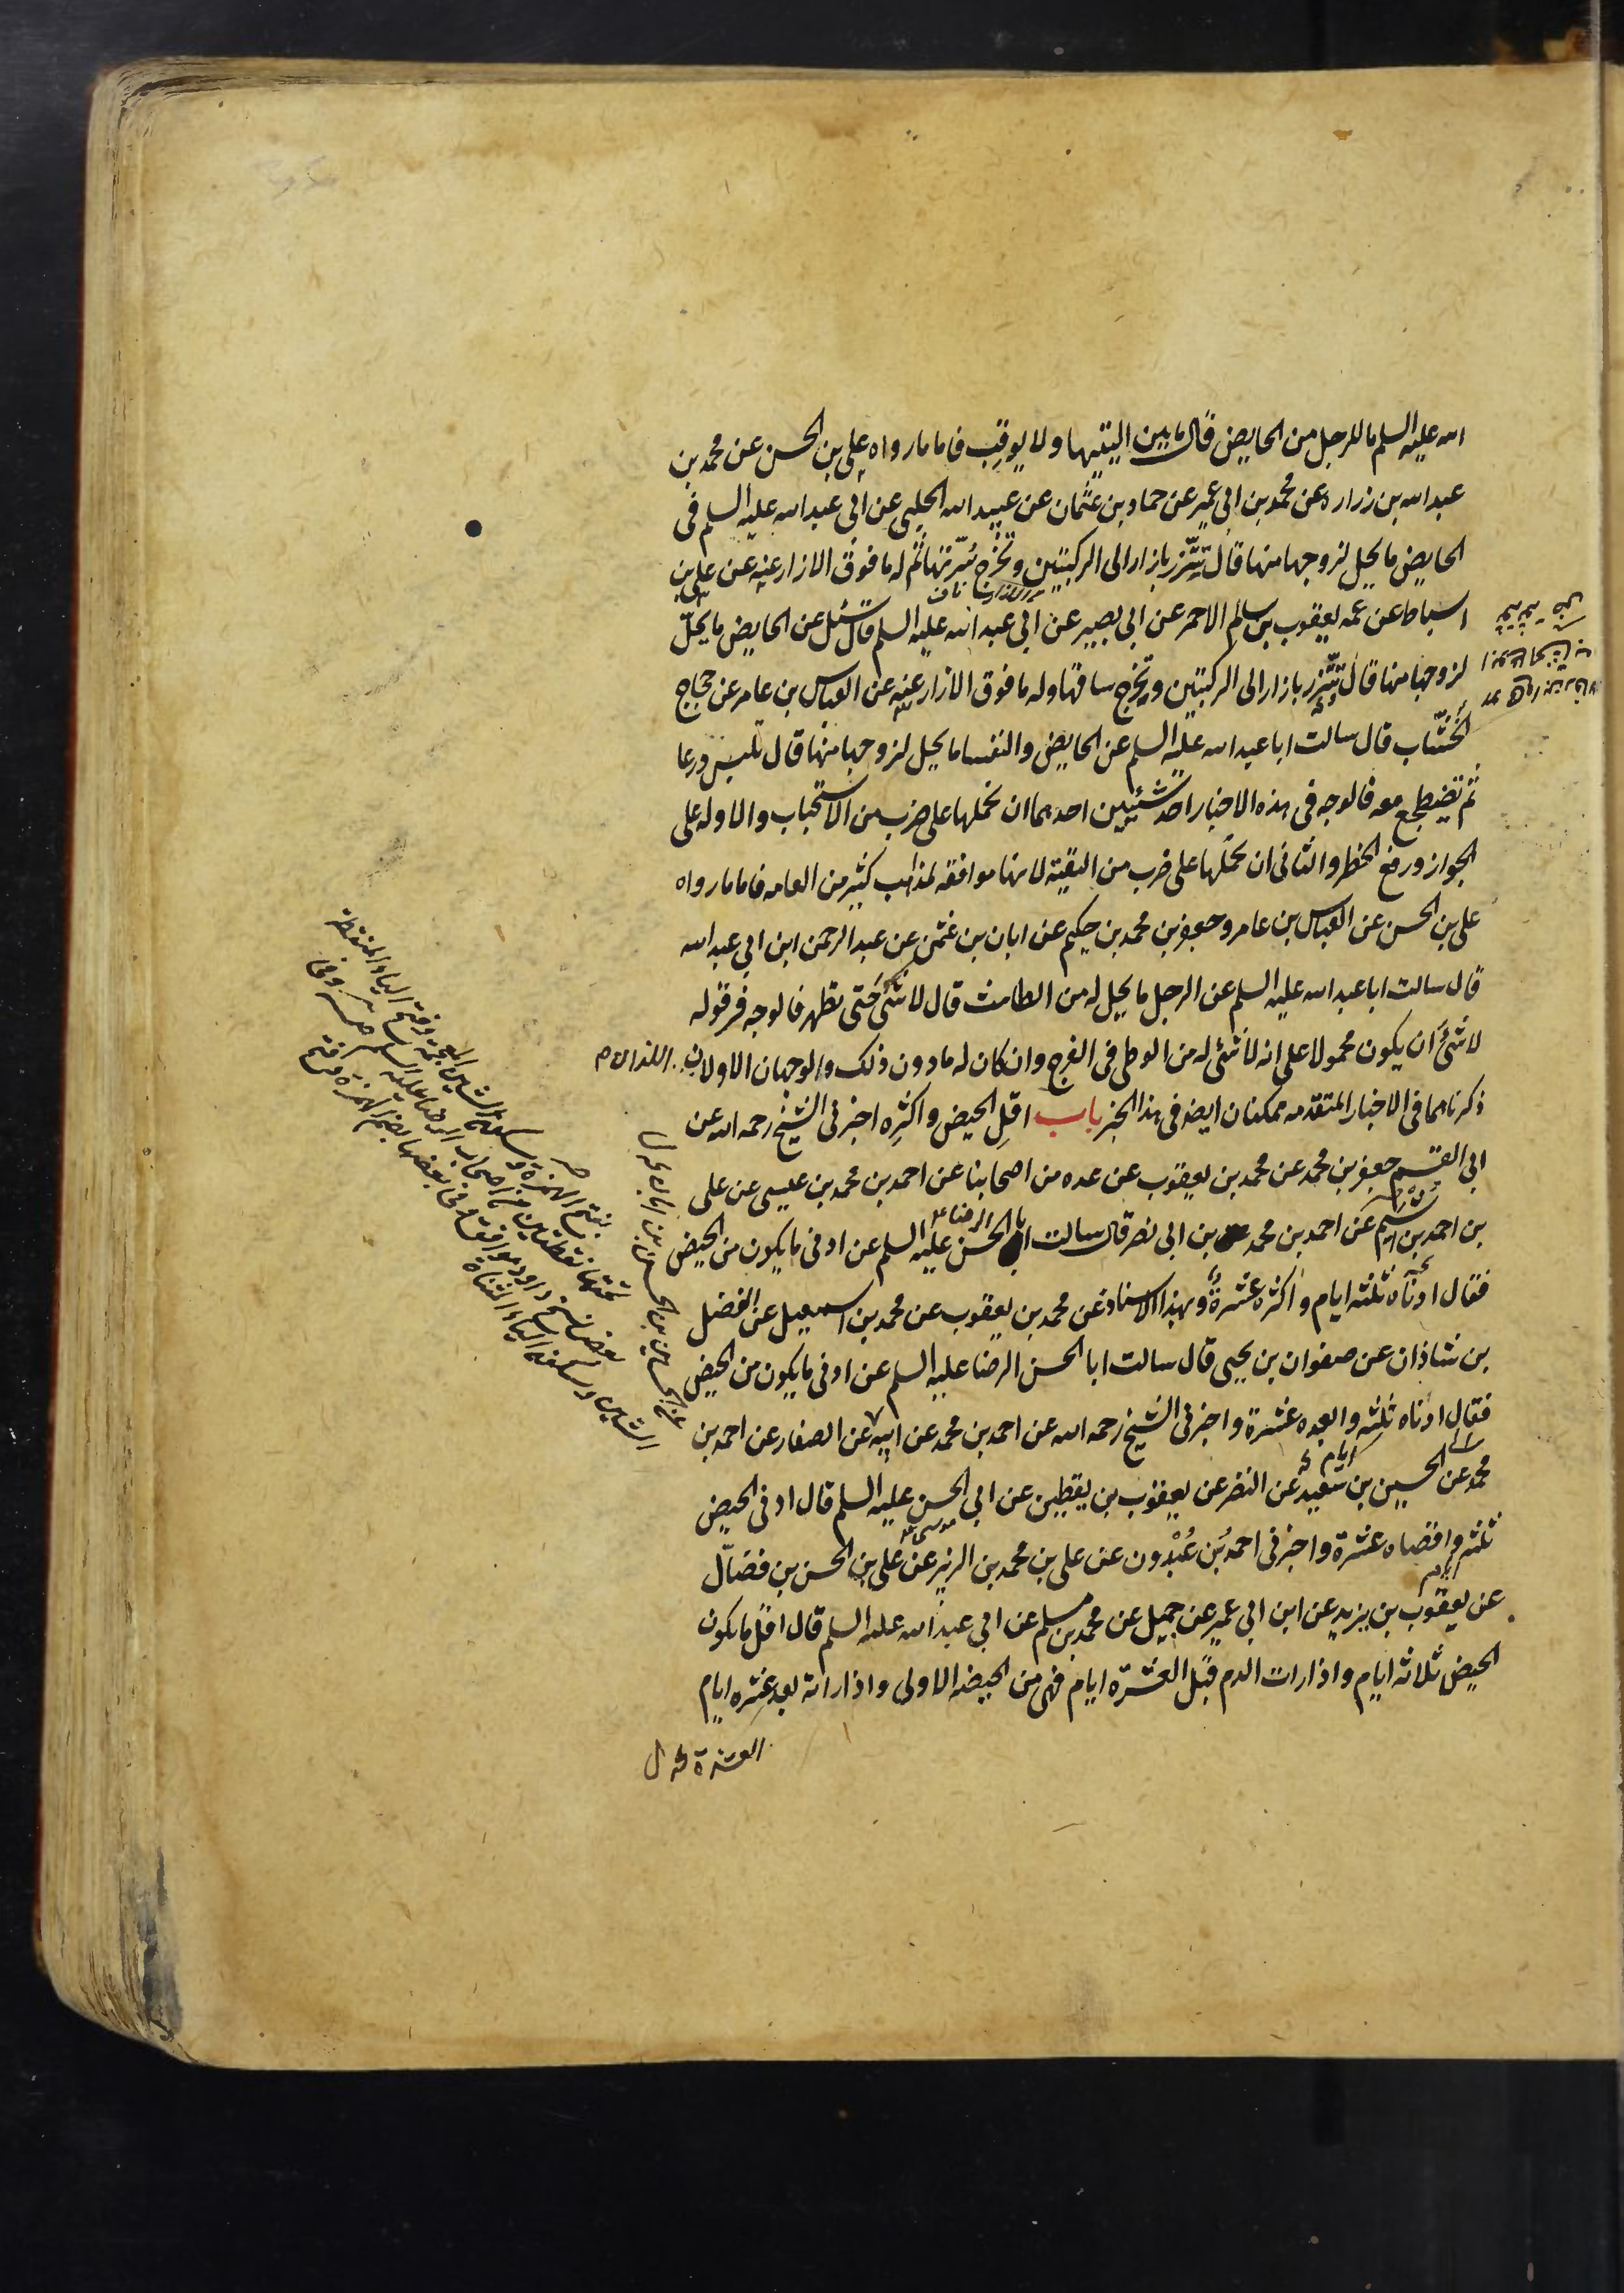 الله عليه السلم ما للرجل من الحايض قال ما بين اليتيها ولا يوقب فاما ما رواه علي بن الحسن عن محمد بن
عبد الله بن زراره عن محمد بن ابي عمير عن حماد بن عثمان عن عبيد الله الحلبي عن ابي عبد الله عليه السلم في
الحايض ما يحل لزوجها منها قال تتزر بازار الى الركبتين وتخرج سرتها ثم له ما فوق الازار عنه عن علي بن
اسباط عن عمه يعقوب بن سالم الاحمر عن ابي بصير عن ابي عبد الله عليه السلم قال سئل عن الحايض ما يحل
لزوجها منها قال تتزر بازار الى الركبتين وتخرج ساقها وله ما فوق الازار عنه عن العباس بن عامر عن حجاج
الخشاب قال سالت ابا عبد الله عليه السلم عن الحايض والنفسا ما يحل لزوجها منها قال تلبس درعا
ثم تضطجع معه فالوجه في هذه الاخبار احد شيئين احدهما ان نحملها على ضرب من الاستحباب والاوله على
الجواز ورفع الحظر والثاني ان نحملها على ضرب من التقية لانها موافقه لمذاهب كثير من العامه فاما ما رواه
علي بن الحسن عن العباس بن عامر وجعفر بن محمد بن حكيم عن ابان بن عثمن عن عبد الرحمن ابن ابي عبد الله
قال سالت ابا عبد الله عليه السلم عن الرجل ما يحل له من الطامث قال لا شئ حتى تطهر فالوجه في قوله
لا شئ ان يكون محمولا على انه لا شئ له من الوطى في الفرج وان كان له ما دون ذلك والوجهان الاولان
ذكرناهما في الاخبار المتقدمه ممكنان ايضا في هذا الخبر باب اقل الحيض واكثره اخبرني الشيخ رحمه الله عن
ابي القسم جعفر بن محمد عن محمد بن يعقوب عن عده من اصحابنا عن احمد بن محمد بن عيسى عن علي
بن احمد بن اشيم عن احمد بن محمد بن ابي نصر قال سالت ابا الحسن عليه السلم عن ادنى ما يكون من الحيض
فقال ادناه ثلثه ايام واكثره عشرة وبهذا الاسناد عن محمد بن يعقوب عن محمد بن اسمعيل عن الفضل
بن شاذان عن صفوان بن يحيى قال سالت ابا الحسن الرضا عليه السلم عن ادنى ما يكون من الحيض
فقال ادناه ثلثه وابعده عشرة واخبرني الشيخ رحمه الله عن احمد بن محمد عن ابيه عن الصفار عن احمد بن
محمد عن الحسين بن سعيد عن النضر عن يعقوب بن يقطين عن ابي الحسن عليه السلم قال ادنى الحيض
ثلثه واقصاه عشرة واخبرني احمد بن عبدون عن علي بن محمد بن الزبير عن علي بن الحسن بن فضال
عن يعقوب بن يزيد عن ابن ابي عمير عن جميل عن محمد بن مسلم عن ابي عبد الله عليه السلم قال اقل ما يكون
الحيض ثلاثه ايام واذا رات الدم قبل العشرة ايام فهي من الحيضه الاولى واذا راته بعد عشره ايام
العشرة